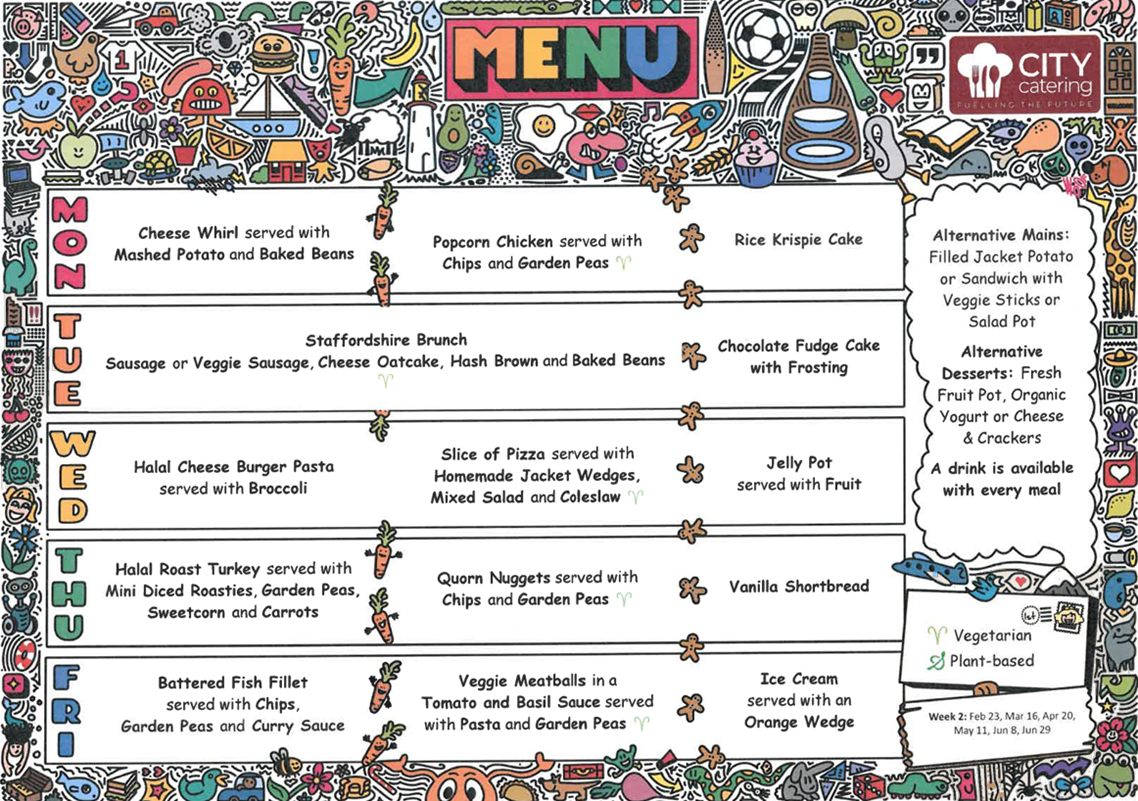 MENU
CITY
catering
FUELLING THE FUTURE
1
MON
Cheese Whirl served with
Mashed Potato and Baked Beans
Popcorn Chicken served with
Chips and Garden Peas
Rice Krispie Cake
TUE
Staffordshire Brunch
Sausage or Veggie Sausage, Cheese Oatcake, Hash Brown and Baked Beans
Chocolate Fudge Cake
with Frosting
WED
Halal Cheese Burger Pasta
served with Broccoli
Slice of Pizza served with
Homemade Jacket Wedges,
Mixed Salad and Coleslaw
Jelly Pot
served with Fruit
THU
Halal Roast Turkey served with
Mini Diced Roasties, Garden Peas,
Sweetcorn and Carrots
Quorn Nuggets served with
Chips and Garden Peas
Vanilla Shortbread
FRI
Battered Fish Fillet
served with Chips,
Garden Peas and Curry Sauce
Veggie Meatballs in a
Tomato and Basil Sauce served
with Pasta and Garden Peas
Ice Cream
served with an
Orange Wedge
Alternative Mains:
Filled Jacket Potato
or Sandwich with
Veggie Sticks or
Salad Pot
Alternative
Desserts: Fresh
Fruit Pot, Organic
Yogurt or Cheese
& Crackers
A drink is available
with every meal
1st
Vegetarian
Plant-based
Week 2: Feb 23, Mar 16, Apr 20,
May 11, Jun 8, Jun 29